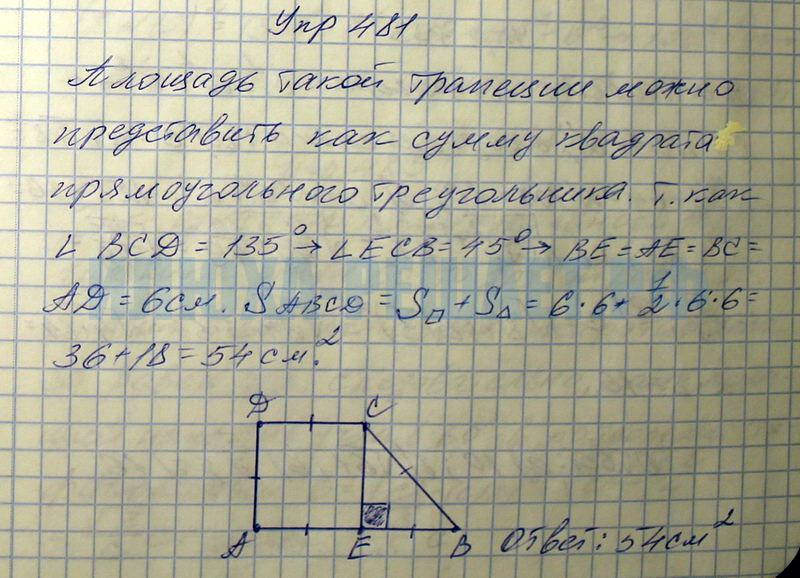 Упр 481
Площадь такой трапеции можно
представить как сумму квадрата
прямоугольного треугольника. т.как
∟ BCD = 135° → ∟ECB = 45° → BE = AE = BC =
AD = 6см. SABCD = S□ + S△ = 6·6+ 1/2·6·6=
36+18=54см.²
D C
A E B Ответ: 54см²